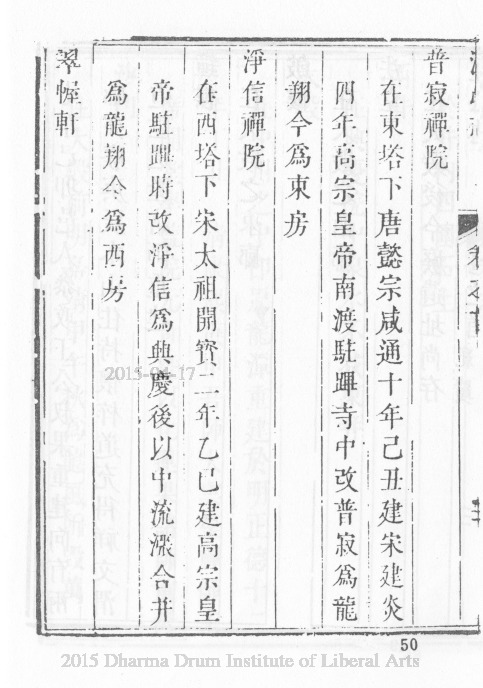 普寂禪院
在東塔下唐懿宗咸通十年己丑建宋建炎
四年高宗皇帝南渡駐蹕寺中改普寂爲龍
翔今爲東房
淨信禪院
在西塔下宋太祖開寶二年乙巳建高宗皇
帝駐蹕時改淨信爲興慶後以中流漲合并
爲龍翔今爲西房
翠幄軒
2015-04-17
50
2015 Dharma Drum Institute of Liberal Arts